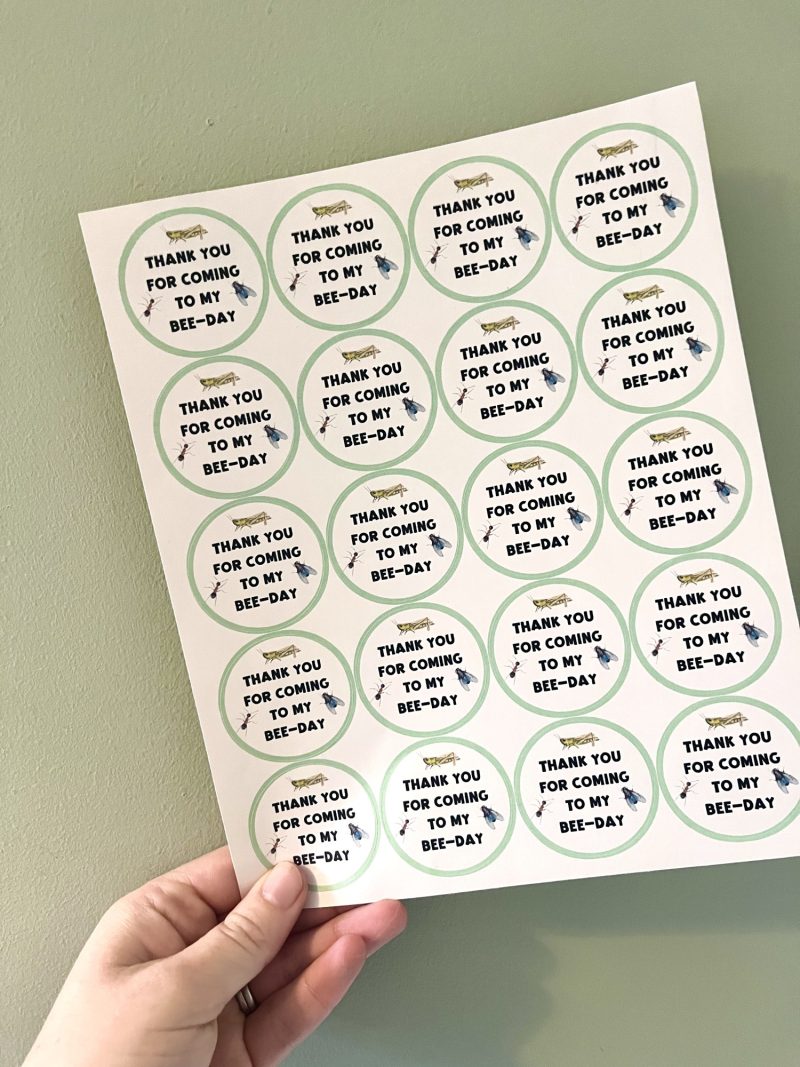 THANK YOU
FOR COMING
TO MY
BEE-DAY
THANK YOU
FOR COMING
TO MY
BEE-DAY
THANK YOU
FOR COMING
TO MY
BEE-DAY
THANK YOU
FOR COMING
TO MY
BEE-DAY
THANK YOU
FOR COMING
TO MY
BEE-DAY
THANK YOU
FOR COMING
TO MY
BEE-DAY
THANK YOU
FOR COMING
TO MY
BEE-DAY
THANK YOU
FOR COMING
TO MY
BEE-DAY
THANK YOU
FOR COMING
TO MY
BEE-DAY
THANK YOU
FOR COMING
TO MY
BEE-DAY
THANK YOU
FOR COMING
TO MY
BEE-DAY
THANK YOU
FOR COMING
TO MY
BEE-DAY
THANK YOU
FOR COMING
TO MY
BEE-DAY
THANK YOU
FOR COMING
TO MY
BEE-DAY
THANK YOU
FOR COMING
TO MY
BEE-DAY
THANK YOU
FOR COMING
TO MY
BEE-DAY
THANK YOU
FOR COMING
TO MY
BEE-DAY
THANK YOU
FOR COMING
TO MY
BEE-DAY
THANK YOU
FOR COMING
TO MY
BEE-DAY
THANK YOU
FOR COMING
TO MY
BEE-DAY